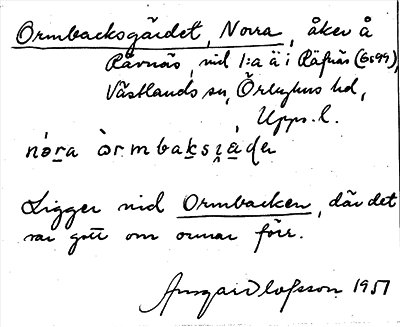 Ormbacksgärdet, Norra, åker å
Råvnäs, vid 1:a ä i Räfnäs (Gs99),
Västlands sn, Örbyhus hd,
Upps. l.
nòra òrmbaksjàḍer
Ligger vid Ormbacken, där det
var gott om ormar förr.
Ansgar Olofsson 1951